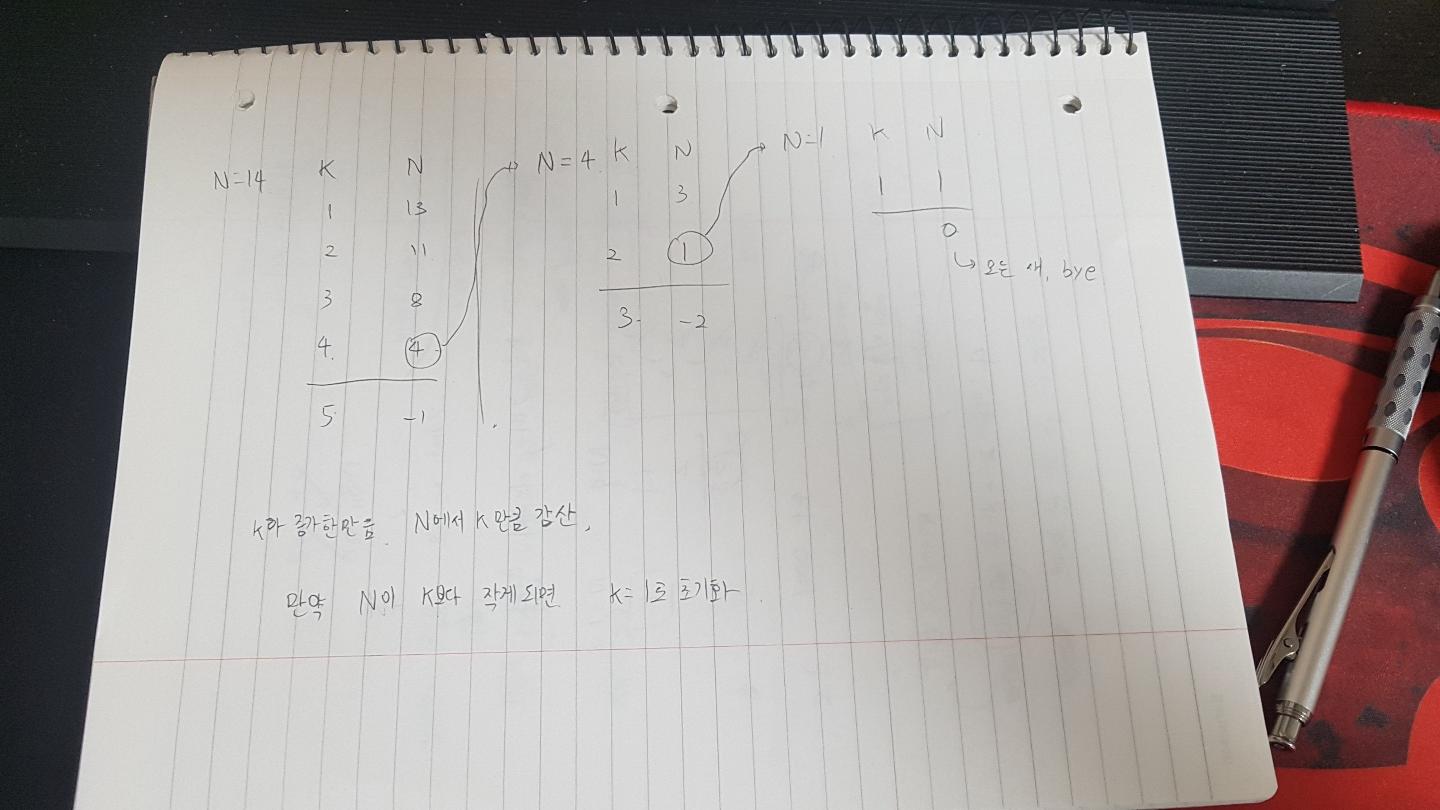 N=14 K N
1 13
2 11
3 8
4. 4
5 -1
N=4 K N
1 3
2 1
3. -2
N=1 K N
1 1
0
↳ 모든 새, bye
K가 증가한만큼 N에서 K만큼 감산.
만약 N이 K보다 작게되면 K=1로 초기화